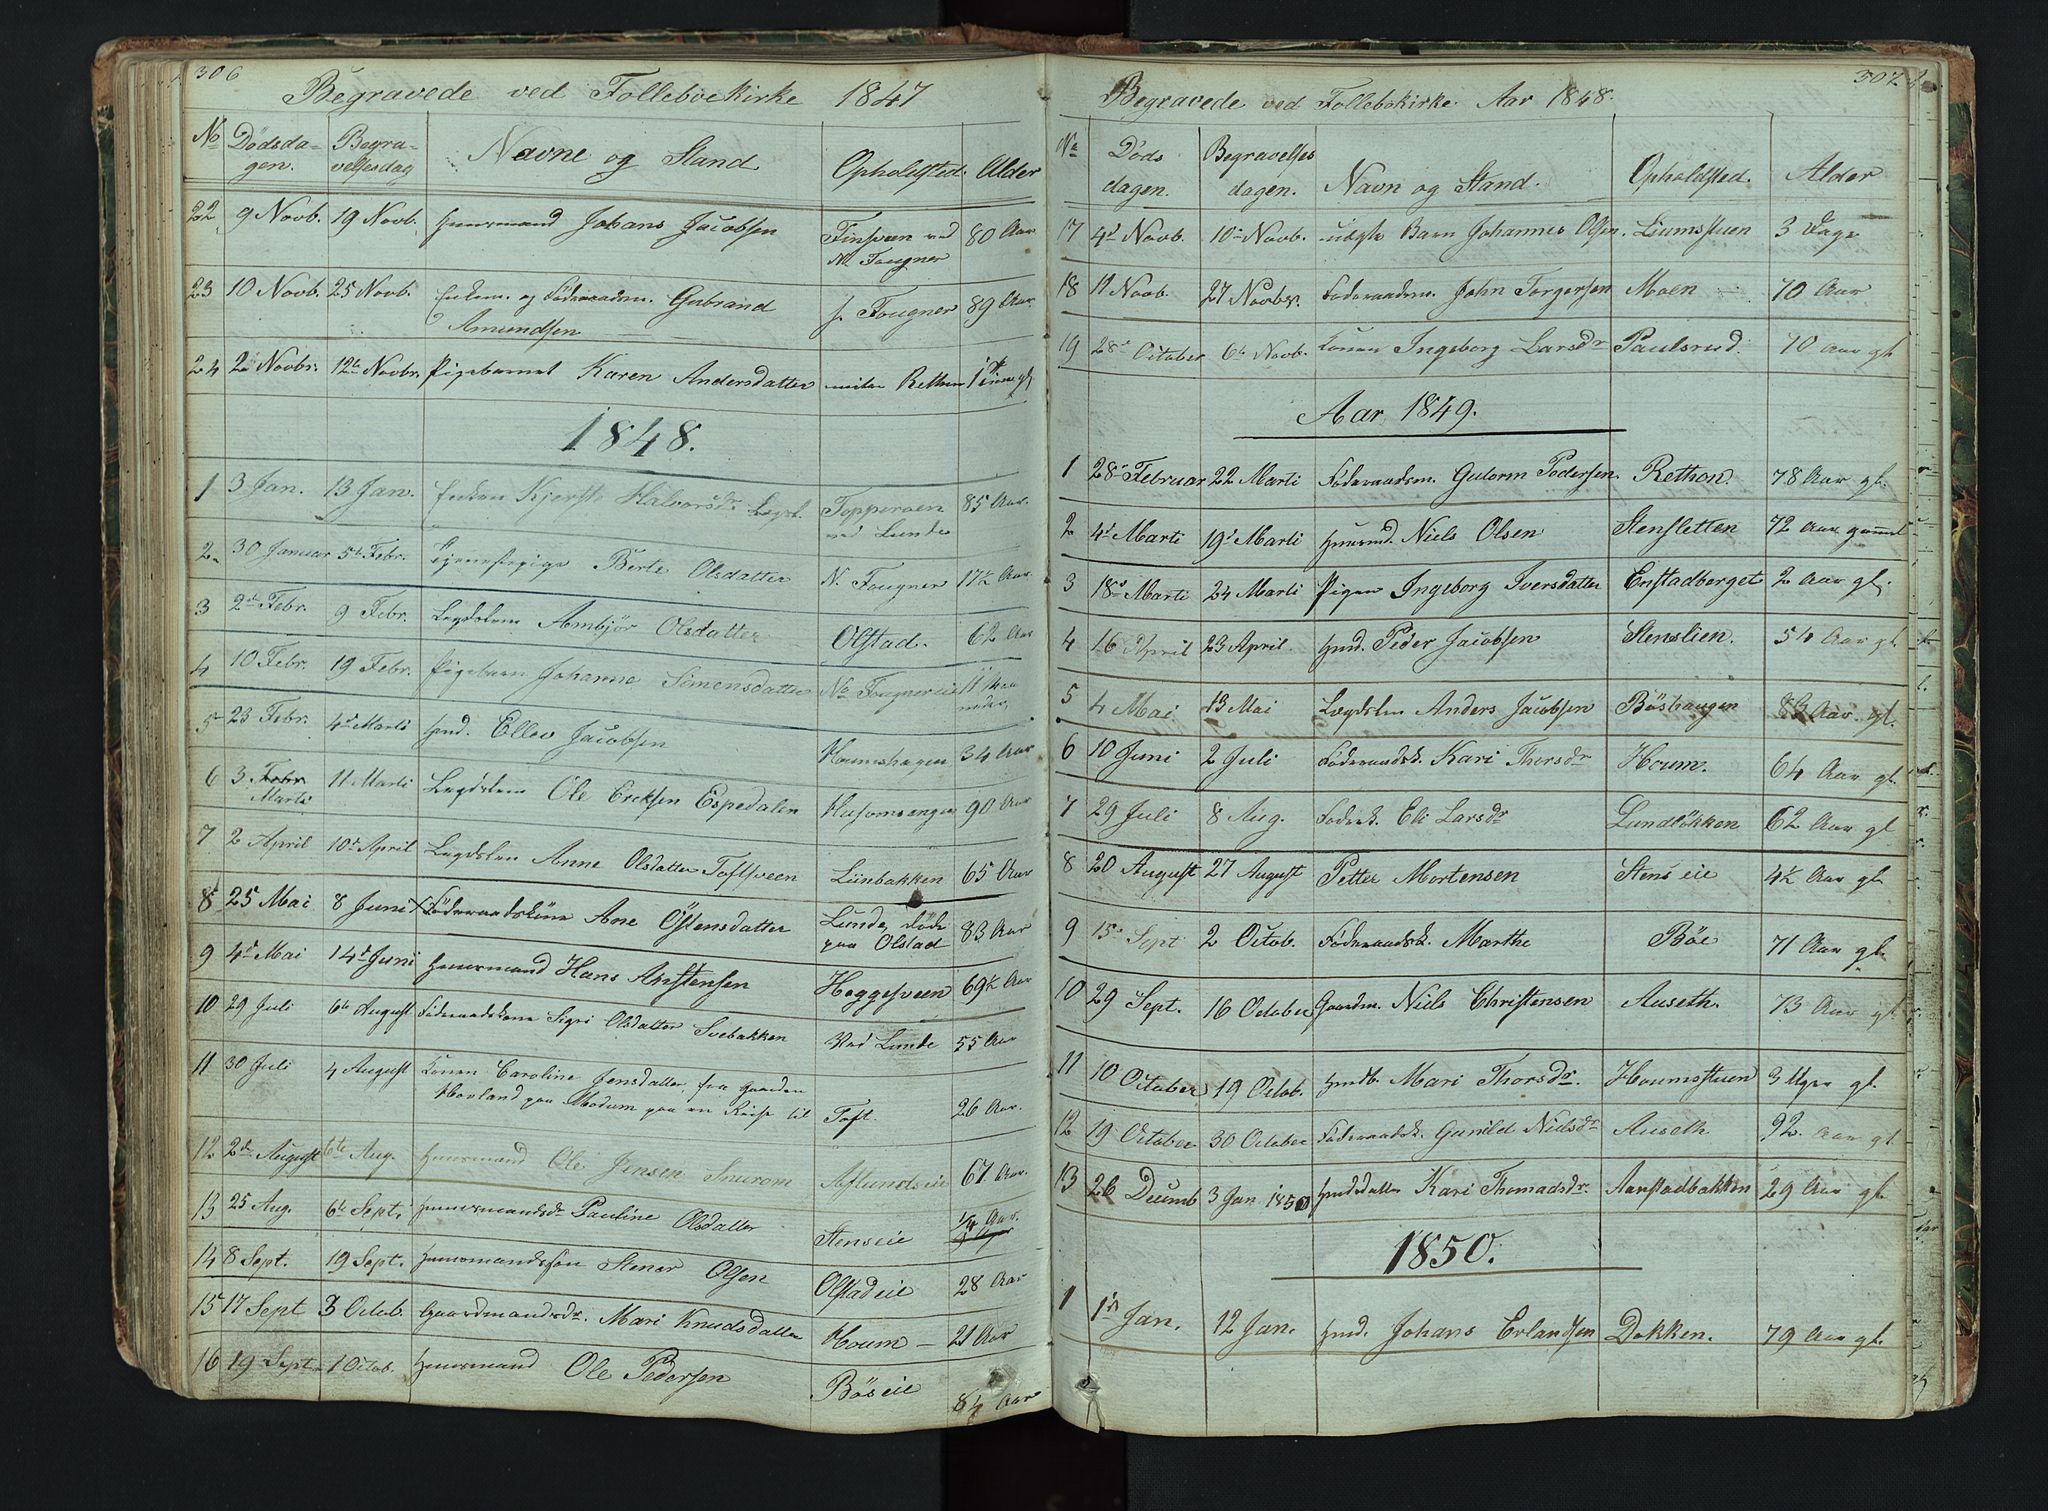 306
Begravede ved Folleboekirke 1847
No Dødsdagen. Begravelsesdag Navne og Stand Opholdsted. Alder
22 9 Novb. 19 Novb. Huusmand Johans Jacobsen Finsveen ved N. Fougner 80 Aar
23 10 Novb. 25 Novb. Enkem. og Føderaadsm. Gubrand Amundsen s. Fougner 89 Aar.
24 2 Novbr. 12te Novbr. Pigebarnet Karen Andersdatter Rethon 1
1848.
1 3 Jan. 13 Jan. Enken Kjersti Halvorsdr Legsl. Topperoen ved Lunde 85 Aar.
2 30 Januar 5te Febr. Berte Olsdatter N. Fougner 17½ Aar.
3 2den Febr. 9 Febr. Legdslem Ambjør Olsdatter Olstad. 62 Aar
4 10 Febr. 19 Febr. Pigebarn Johanne Simensdatter No Fougnereie 11 Maaneder,
5 23 Febr. 4de Marti Hmd. Ellev Jacobsen Houmshagen 34 Aar
6 3 Febr. Marti 11 Marti Legdslem Ole Ericksen Espedalen Husomsengen 90 Aar
7 2 April 10de April Legdslem Anne Olsdatter Toftsveen Liinbakken 65 Aar
8 25 Mai 8 Juni Føderaadskone Ane Østensdatter Lunde, døde paa Olstad 83 Aar
9 4de Mai 14de Juni Huusmand Hans Anstensen Heggesveen 69½ Aar
10 29 Juli 6te August Føderaadskone Sigri Olsdatter Svebakken Ved Lunde 55 Aar
11 30 Juli 4 August Konen Caroline Jensdatter, fra Gaarden Hovland paa Modum paa en Reise til Toft. 26 Aar.
12 2den August 6te Aug. Huusmand Ole Jensen Snurom Aslundseie 67 Aar.
13 25 Aug. 6te Sept. Huusmandsdr Pauline Olsdatter Stenseie ¼ Aar.
14 8 Sept. 19 Sept. Huusmandssøn Stener Olsen Olstadeie 28 Aar
15 17 Sept 3 Octob. Gaardmandsdr. Mari Knudsdatter Houm 21 Aar
16 19 Sept. 1 Octob. Huusmand Ole Pedersen Bøseie 84 Aar
307
Begravede ved Follebokirke. Aar 1848.
No Dødsdagen. Begravelsesdagen. Navn og Stand. Opholdsted. Alder
17 4de Novb. 10de Novb. uægte Barn Johannes Olsen. Liumsstuen 3 Dage
18 11 Novb. 27 Novbr. Føderaadsm. John Torgersen Moen 70 Aar
19 28de October 6te Novb. Konen Ingeborg Larsdr Paulsrud. 70 Aar gl.
Aar 1849.
1 28de Februar 22 Marti Føderaadsm. Gutorm Pedersen. Rethon. 78 Aar gl.
2 4de Marti 19de Marti Huusmd. Niels Olsen Stensletten 72 Aar gammel
3 18de Marti 24 Marti Pigen Ingeborg Iversdatter Enstadberget 2 Aar gl.
4 16 April 23 April. Hmd. Peder Jacobsen Stenslien. 54 Aar gl.
5 4 Mai 13 Mai Legdslem Anders Jacobsen Bøshaugen 83 Aar. gl.
6 10 Juni 2 Juli Føderaadsk. Kari Thorsdr Houm. 64 Aar gl.
7 29 Juli 8 Aug. Føderk. Eli Larsdr Lundløkken 62 Aar gl
8 20 August 27 August Petter Mortensen Stenseie 4½ Aar gl.
9 15de Sept 2 Octob. Føderaadsk. Marthe Böe 71 Aar gl.
10 29 Sept. 16 October Gaardm. Niels Christensen Auseth. 73 Aar gl
11 10 October 19 Octob. Mari Thorsdr. Houmsstuen 3 Uger gl.
12 19 October 30 October Føderaadsk. Gunild Nielsdr Auseth 92 Aar gl
13 26 Decemb 3 Jan 1850 Hmdsdatter Kari Thomasdr. Aarstadbakken 29 Aar gl.
1850.
1 1ste Jan. 12 Jan. Hmd. Johans Erlandsen Dokken. 79 Aar gl.